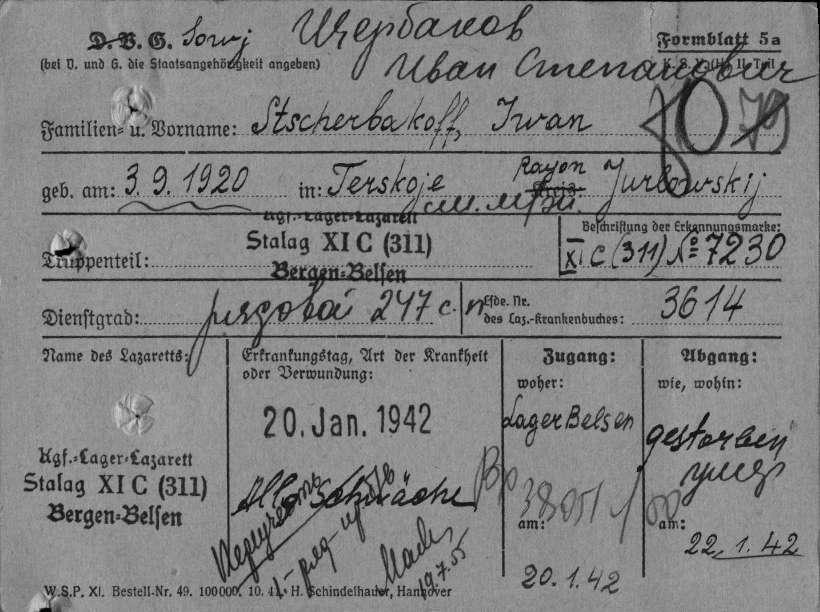 D. V. G. Sowj Щербаков Formblatt 5a
(bei V. und G. die Staatsangehörigkeit angeben) K. S. V. (H) II. Teil
Иван Степанович
Familien- u. Vorname: Stscherbakoff, Iwan
geb. am: 3. 9. 1920 in: Terskoje Kreis Rayon Jurlowskij
Kgf.-Lager-Lazarett
Stalag XI C (311)
Bergen-Belsen
Truppenteil:
Beschriftung der Erkennungsmarke:
XI C (311) № 7230
Dienstgrad: рядовой 247 с. п
Lfde. Nr.
des Laz.-Krankenbuches: 3614
Name des Lazaretts:
Kgf.-Lager-Lazarett
Stalag XI C (311)
Bergen-Belsen
Erkrankungstag, Art der Krankheit
oder Verwundung:
20. Jan. 1942
Allg. Schwäche
19.7.55
Zugang:
woher:
Lager Belsen
am:
20. 1. 42
Abgang:
wie, wohin:
gestorben
умер
am:
22. 1. 42
W.S.P. XI. Bestell-Nr. 49. 100000. 10. 41. H. Schindelhauer, Hannover